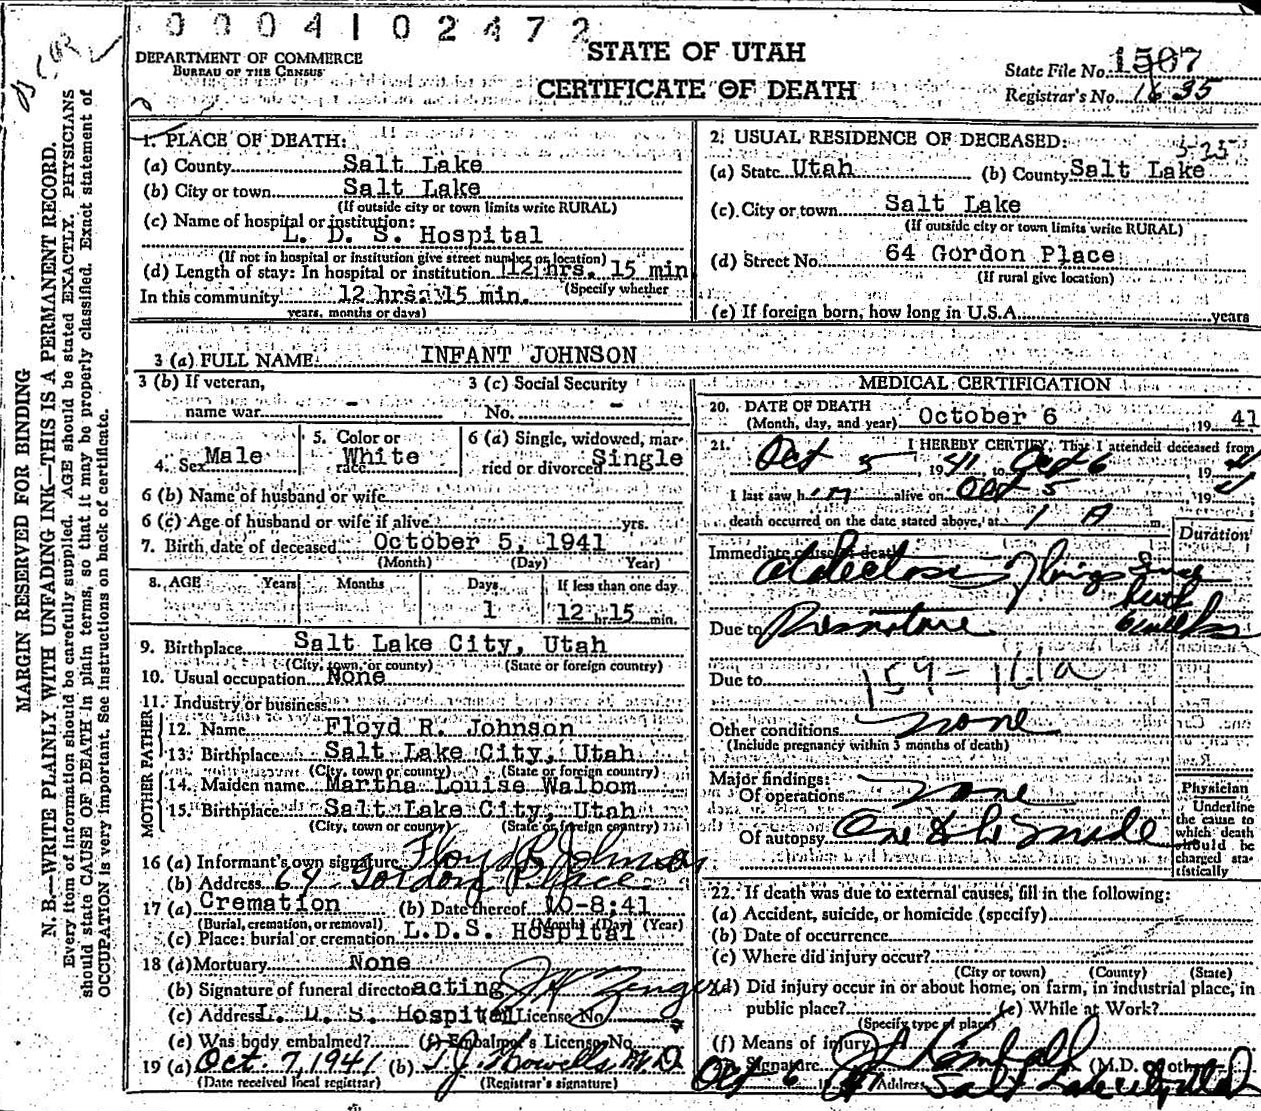 0004102472
DEPARTMENT OF COMMERCE
BUREAU OF THE CENSUS
STATE OF UTAH
CERTIFICATE OF DEATH
State File No. 1507
Registrar's No. 1635
MARGIN RESERVED FOR BINDING
N. B.—WRITE PLAINLY WITH UNFADING INK—THIS IS A PERMANENT RECORD.
Every item of information should be carefully supplied. AGE should be stated EXACTLY. PHYSICIANS
should state CAUSE OF DEATH in plain terms, so that it may be properly classified. Exact statement of
OCCUPATION is very important. See instructions on back of certificate.
1. PLACE OF DEATH:
(a) County Salt Lake
(b) City or town Salt Lake
(If outside city or town limits write RURAL)
(c) Name of hospital or institution:
L. D. S. Hospital
(If not in hospital or institution give street number or location)
(d) Length of stay: In hospital or institution 12 hrs. 15 min
(Specify whether
In this community 12 hrs. 15 min.
years, months or days)
2. USUAL RESIDENCE OF DECEASED:
(a) State Utah (b) County Salt Lake
(c) City or town Salt Lake
(If outside city or town limits write RURAL)
(d) Street No. 64 Gordon Place
(If rural give location)
(e) If foreign born, how long in U.S.A. years
3 (a) FULL NAME INFANT JOHNSON
3 (b) If veteran, name war -
3 (c) Social Security No. -
4. Sex Male
5. Color or race White
6 (a) Single, widowed, married or divorced Single
6 (b) Name of husband or wife
6 (c) Age of husband or wife if alive yrs.
7. Birth date of deceased October 5, 1941
(Month) (Day) (Year)
8. AGE Years Months Days If less than one day
1 12 hr. 15 min.
9. Birthplace Salt Lake City, Utah
(City, town, or county) (State or foreign country)
10. Usual occupation None
11. Industry or business
FATHER
12. Name Floyd R. Johnson
13. Birthplace Salt Lake City, Utah
(City, town or county) (State or foreign country)
MOTHER
14. Maiden name Martha Louise Walbom
15. Birthplace Salt Lake City, Utah
(City, town or county) (State or foreign country)
16 (a) Informant's own signature Floyd R Johnson
(b) Address 64 Gordon Place
17 (a) Cremation (b) Date thereof 10-8-41
(Burial, cremation, or removal) (Month) (Day) (Year)
(c) Place: burial or cremation L.D.S. Hospital
18 (a) Mortuary None
(b) Signature of funeral director acting
(c) Address L. D. S. Hospital License No.
(e) Was body embalmed? (f) Embalmer's License No.
19 (a) Oct. 7, 1941 (b) T J Howells M.D.
(Date received local registrar) (Registrar's signature)
MEDICAL CERTIFICATION
20. DATE OF DEATH
(Month, day, and year) October 6 19 41
21. I HEREBY CERTIFY, That I attended deceased from
Oct 5 1941, to Oct 6, 1941
I last saw him alive on Oct 5, 1941
death occurred on the date stated above, at 1 A m.
Duration
Immediate cause of death
Atelectasis of lungs Since birth
Due to Premature
Due to 159-161a
Other conditions none
(Include pregnancy within 3 months of death)
Major findings:
Of operations none
Of autopsy One to be made
Physician
Underline
the cause to
which death
should be
charged sta-
tistically
22. If death was due to external causes, fill in the following:
(a) Accident, suicide, or homicide (specify)
(b) Date of occurrence
(c) Where did injury occur?
(City or town) (County) (State)
(d) Did injury occur in or about home, on farm, in industrial place, in
public place? (e) While at Work?
(Specify type of place)
(f) Means of injury
Signature Kimball (M.D. or other)
Oct 6 1941 Address Salt Lake City Utah